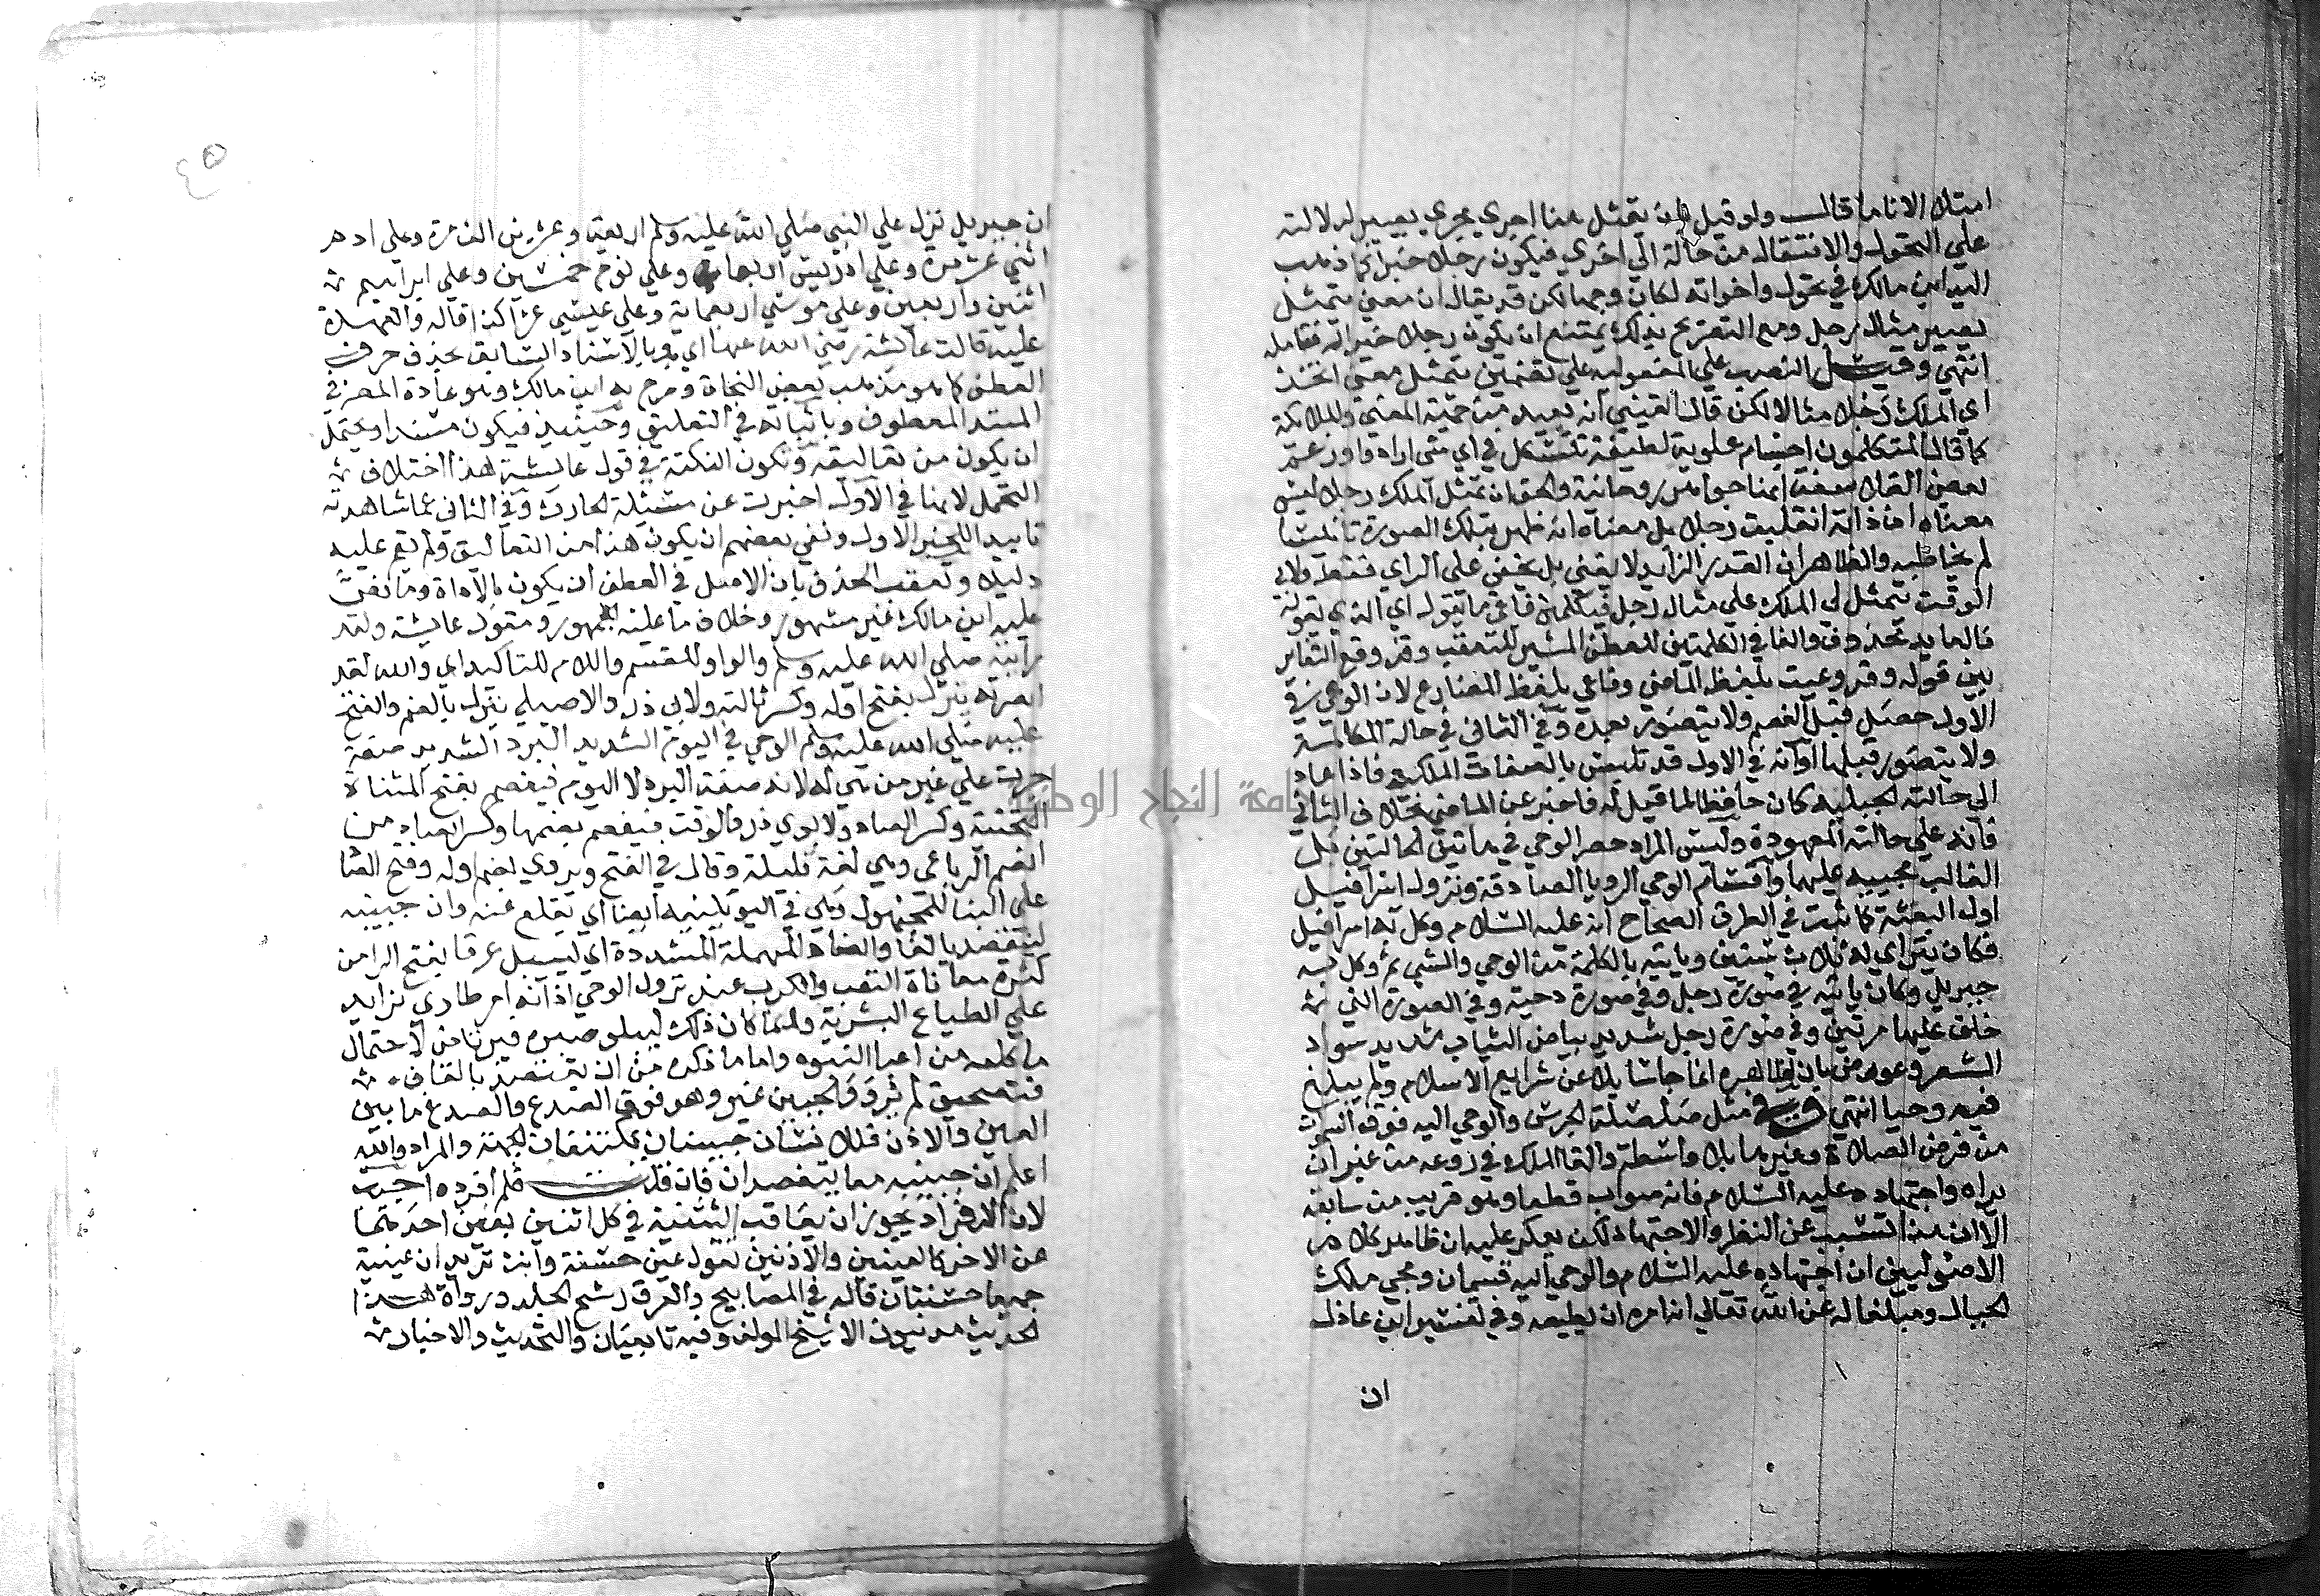 امتلا الاناما قال ولو قيل بان يتمثل هنا اجري مجري يصير لدلالته
علي التحول والانتقال من حالة الي اخري فيكون رجلا خبرا كما ذهب
اليه ابن مالك في تحول واخواته لكان وجها لكن قد يقال ان معني يتمثل
يصير مثال رجل ومع التصريح بذلك يمتنع ان يكون رجلا خبرا له فتامله
انتهي وقيل النصب علي المفعوليه علي تضمين يتمثل معني اتخذ
اي الملك رجلا مثالا لكن قال العيني انه بعيد من جهة المعني والملائكة
كما قال المتكلمون اجسام علوية لطيفة تتشكل في اي شي ارادوا وزعم
بعض الفلاسفة انها جواهر روحانية والحق ان تمثل الملك رجلا ليس
معناه ان ذاته انقلبت رجلا بل معناه انه ظهر بتلك الصورة تانيسا
لم يخاطبه والظاهر ان القدر الزايد لا يفني بل يخفي علي الراي فقط ولابي
الوقت يتمثل لي الملك علي مثال رجل فيكلمني فاعي ما يقول اي الذي يقوله
فالعايد محذوف والفا في الكلمتين للعطف المشير للتعقب وقد وقع التغاير
بين قوله وقد وعيت بلفظ الماضي وفاعي بلفظ المضارع لان الوعي في
الاول حصل قبل الفصم ولا يتصور بعده وفي الثاني في حالة المكالمة
ولا يتصور قبلها او انه في الاول قد تلبس بالصفات الملكيه فاذا عاد
الي حالته الجبليه كان حافظا لما قيل له فاخبر عن الماضي بخلاف الثاني
فانه علي حالته المعهودة وليس المراد حصر الوحي في هاتين الحالتين بل
الغالب مجييه عليهما واقسام الوحي الرويا الصادقة ونزول اسرافيل
اول البعثة كما ثبت في الطرق الصحاح انه عليه السلام وكل به اسرافيل
فكان يتراي له ثلاث سنين وياتيه بالكلمة من الوحي والشي ثم وكل به
جبريل وكان ياتيه في صورة رجل وفي صورة دحية وفي الصورة التي
خلق عليها مرتين وفي صورة رجل شديد بياض الثياب شديد سواد
الشعر وعورض بان ظاهره انما جا سايلا عن شرايع الاسلام ولم يبلغ
فيه وحيا انتهي في مثل صلصلة الجرس والوحي اليه فوق السموات
من فرض الصلاة وغيرها بلا واسطة والقا الملك في روعه من غير ان
يراه واجتهاده عليه السلام فانه صواب قطعا وهو قريب من سابقه
الا ان هذا تسبب عن النظر والاجتهاد لكن يعكر عليه ان ظاهر كلام
الاصوليين ان اجتهاده عليه السلام والوحي اليه قسمان ومجي ملك
الجبال ومبلغا له عن الله تعالي انه امره ان يطيعه وفي تفسير ابن عادل
ان
٤٥
ان جبريل نزل علي النبي صلي الله عليه وسلم اربعة وعشرين الف مرة وعلي ادم
اثني عشر مرة وعلي ادريس اربعا وعلي نوح خمسين وعلي ابراهيم
اثنين واربعين وعلي موسي اربعماية وعلي عيسي عشرا كذا قاله والعهدة
عليه قالت عايشة رضي الله عنها اي وبالاسناد السابق بحذف حرف
العطف كما هو مذهب بعض النحاة وصرح به ابن مالك وهو عادة المصنف في
المسند المعطوف وباثباته في التعليق وحينيذ فيكون مسندا ويحتمل
ان يكون من تعاليقه وتكون النكتة في قول عايشة هذا اختلاف
التحمل لانها في الاول اخبرت عن مسئلة الحارث وفي الثاني عما شاهدته
تاييدا للخبر الاول ونفي بعضهم ان يكون هذا من التعاليق ولم يقم عليه
دليلا وتعقب الحذف بان الاصل في العطف ان يكون بالاداة وما نص
عليه ابن مالك غير مشهور وخلاف ما عليه الجمهور ومقول عايشة ولقد
رايته صلي الله عليه وسلم والواو للقسم واللام للتاكيد اي والله لقد
ابصرته ينزل بفتح اوله وكسر ثالثه ولابي ذر والاصيلي ينزل بالضم والفتح
عليه صلي الله عليه وسلم الوحي في اليوم الشديد البرد الشديد صفة
جرت علي غير من هي له لانه صفة البرد لا اليوم فيفصم بفتح المثناة
التحتية وكسر الصاد ولابوي ذر والوقت فيفصم بضمها وكسر الصاد من
افصم الرباعي وهي لغة قليلة وقال في الفتح ويروي بضم اوله وفتح الصاد
علي البنا للمجهول وهي في اليونينيه ايضا اي يقلع عنه وان جبينه
ليتفصد بالفا والصاد المهملة المشددة اي ليسيل عرقا بفتح الرا من
كثرة معاناة التعب والكرب عند نزول الوحي اذ انه امر طاري زايد
علي الطباع البشرية وانما كان ذلك ليبلو صبره فيرتاض لاحتمال
ما كلفه من اعبا النبوه واما ما ذكره من ان يتقصد بالقاف
فتصحيف لم يرو والجبين غير وهو فوق الصدغ والصدغ ما بين
العين والاذن فللانسان جبينان يكتنفان الجبهة والمراد والله
اعلم ان جبينيه معا يتفصدان فان قلت فلم افرده اجيب
لان الافراد يجوز ان يعاقب التثنية في كل اثنين يغني احدهما
عن الاخر كالعينين والاذنين تقول عين حسنة وانت تريد ان عينيه
جميعا حسنتان قاله في المصابيح والعرق رشح الجلد ورواة هذا
الحديث مدنيون الا شيخ المولف وفيه تابعيان والتحديث والاخبار